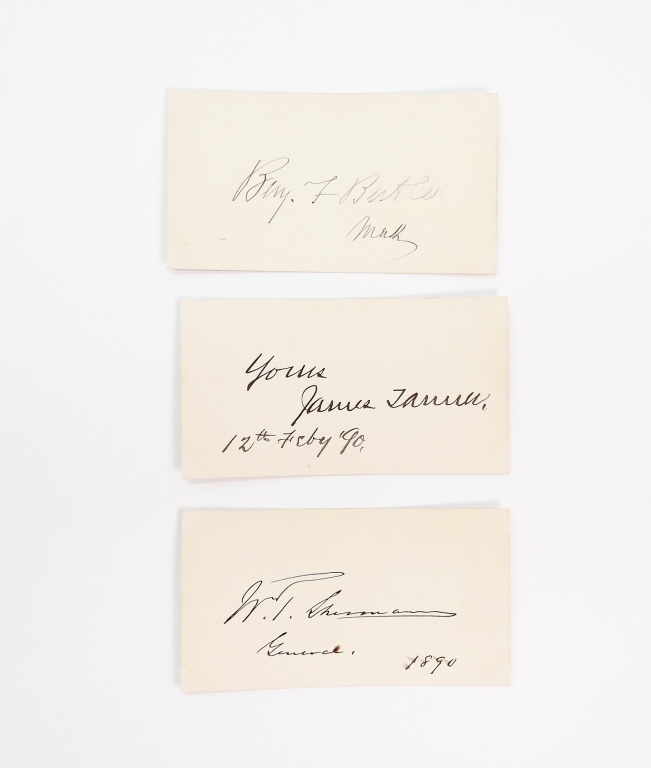 Benj. F Butler
Mass
Yours
James Tanner.
12th Feby '90.
W. T. Sherman
General.
1890